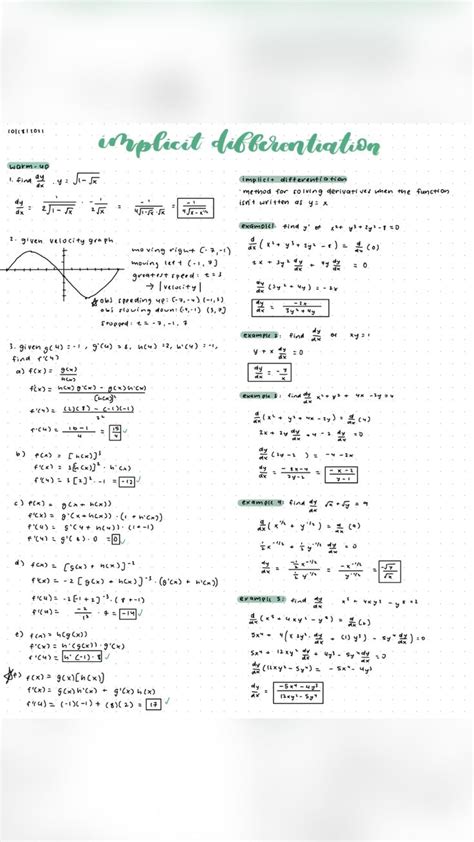 10/18/2021
implicit differentiation
warm-up
1. find dy/dx . y = √(1-√x)
dy/dx = 1/(2√(1-√x)) · -1/(2√x) = -1/(4√(1-√x)·√x) =
2. given velocity graph
moving right (-7,-1)
moving left (-1, 7)
greatest speed: t = 3
→ |velocity|
obj speeding up: (-7,-4) (-1,3)
obj slowing down: (-4,-1) (3,7)
stopped: t = -7, -1, 7
3. given g(4) = -1, g'(4) = 8, h(4) = 2, h'(4) = -1,
find f'(4)
a) f(x) = g(x)/h(x)
f'(x) = (h(x)g'(x) - g(x)h'(x))/[h(x)]²
f'(4) = ((2)(8) - (-1)(-1))/2²
f'(4) = (16-1)/4 = 15/4
b) f(x) = [h(x)]³
f'(x) = 3[h(x)]² · h'(x)
f'(4) = 3[2]² · -1 = -12
c) f(x) = g(x + h(x))
f'(x) = g'(x + h(x)) · (1 + h'(x))
f'(4) = g'(4 + h(4)) · (1 + -1)
f'(4) = g'(6) · 0 = 0
d) f(x) = [g(x) + h(x)]⁻²
f'(x) = -2 [g(x) + h(x)]⁻³ · (g'(x) + h'(x))
f'(4) = -2[-1 + 2]⁻³ · (8 + -1)
f'(4) = -2/1³ · 7 = -14
e) f(x) = h(g(x))
f'(x) = h'(g(x)) · g'(x)
f'(4) = h'(-1) · 8
f) f(x) = g(x)[h(x)]
f'(x) = g(x)h'(x) + g'(x)h(x)
f'(4) = (-1)(-1) + (8)(2) = 17
implicit differentiation
· method for solving derivatives when the function
isn't written as y = x
example 1: find y' of x² + y³ + 2y² - 8 = 0
d/dx (x² + y³ + 2y² - 8) = d/dx (0)
2x + 3y² dy/dx + 4y dy/dx = 0
dy/dx (3y² + 4y) = -2x
dy/dx = -2x/(3y² + 4y)
example 2: find dy/dx of xy = 1
y + x dy/dx = 0
dy/dx = -y/x
example 3: find dy/dx x² + y² + 4x - 2y = 4
d/dx (x² + y² + 4x - 2y) = d/dx (4)
2x + 2y dy/dx + 4 - 2 dy/dx = 0
dy/dx (2y - 2) = -4 - 2x
dy/dx = (-2x-4)/(2y-2) = (-x-2)/(y-1)
example 4: find dy/dx √x + √y = 9
d/dx (x^1/2 + y^1/2) = d/dx (9)
½x^-1/2 + ½y^-1/2 dy/dx = 0
dy/dx = (-½x^-1/2)/(½y^-1/2) = (-x^-1/2)/(y^-1/2) = -√y/√x
example 5: find dy/dx
d/dx (x⁵ + 4xy³ - y⁵) = d/dx (2)
5x⁴ + 4(x3y² dy/dx + (1)y³) - 5y⁴ dy/dx = 0
5x⁴ + 12xy² dy/dx + 4y³ - 5y⁴ dy/dx = 0
dy/dx (12xy² - 5y⁴) = -5x⁴ - 4y³
dy/dx = (-5x⁴ - 4y³)/(12xy² - 5y⁴)